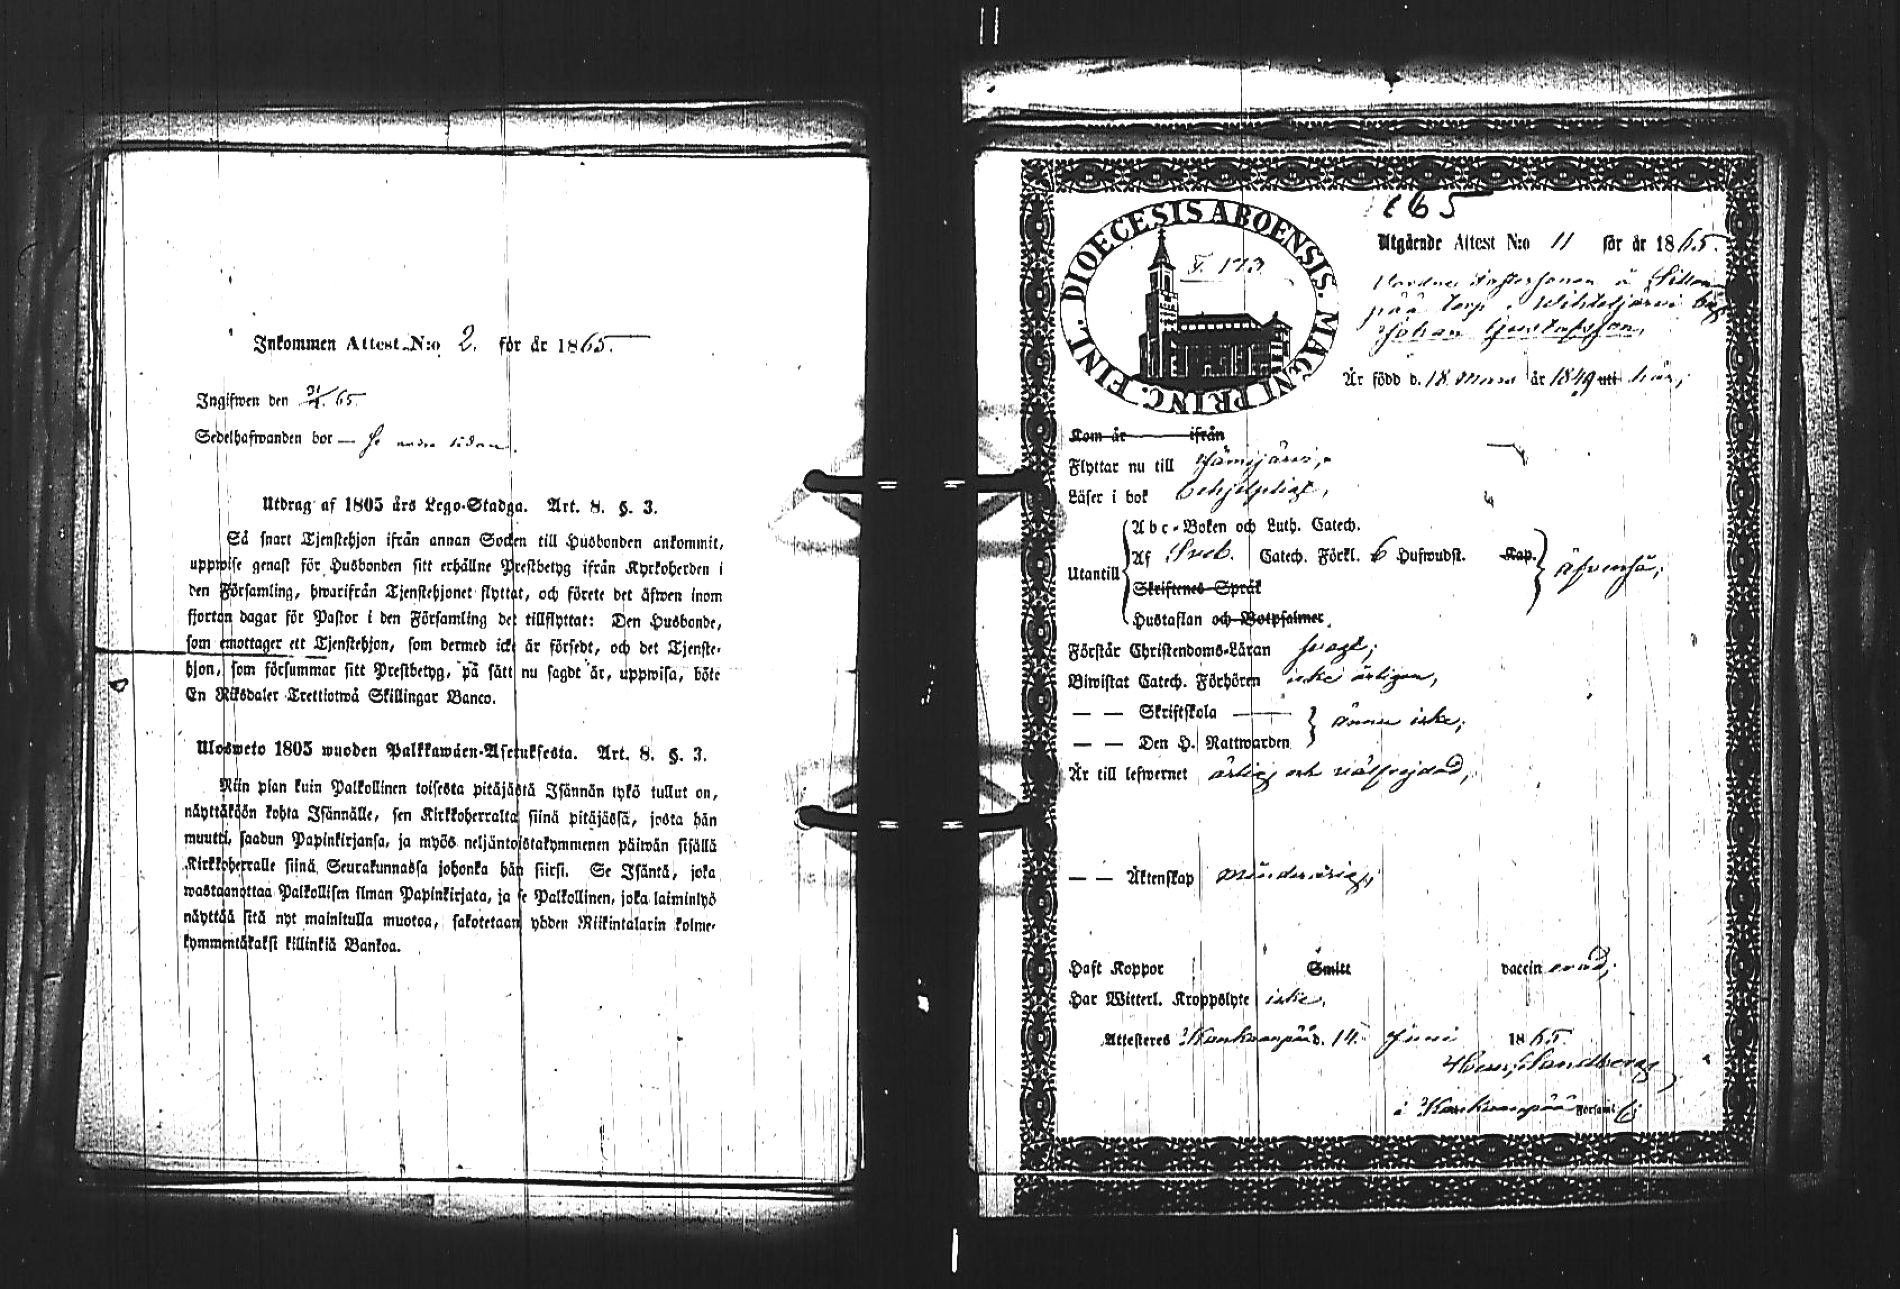 Inkommen Attest N:o 2. för år 1865.
Ingifwen den 65
Sedelhafwanden bor — Se andra sidan.
Utdrag af 1805 års Lego-Stadga. Art. 8. §. 3.
Så snart Tjenstehjon ifrån annan Socken till Husbonden ankommit,
uppwise genast för Husbonden sitt erhållne Prestbetyg ifrån Kyrkoherden i
den Församling, hwarifrån Tjenstehjonet flyttat, och förete det äfwen inom
fjorton dagar för Pastor i den Församling det tillflyttat: Den Husbonde,
som emottager ett Tjenstehjon, som dermed icke är försedt, och det Tjenste-
hjon, som försummar sitt Prestbetyg, på sätt nu sagdt är, uppwisa, böte
En Riksdaler Trettiotwå Skillingar Banco.
Ulosweto 1805 wuoden Palkkawäen-Asetuksesta. Art. 8. §. 3.
Niin pian kuin Palkollinen toisesta pitäjästä Isännän tykö tullut on,
näyttäköön kohta Isännälle, sen Kirkkoherralta siinä pitäjässä, josta hän
muutti, saadun Papinkirjansa, ja myös neljäntoistakymmenen päiwän sisällä
Kirkkoherralle siinä Seurakunnassa johonka hän siirsi. Se Isäntä, joka
wastaanottaa Palkollisen ilman Papinkirjata, ja se Palkollinen, joka laiminlyö
näyttää sitä nyt mainitulla muotoa, sakotetaan yhden Riikintalarin kolme-
kymmentäkaksi killinkiä Bankoa.
DIOECESIS ABOENSIS. MAGNI PRINC. FINL.
F. 173.
165
Utgående Attest N:o 11 för år 1865.
å
torp by
Johan Gustafsson,
Är född d. 18 Mars år 1849 uti här;
Kom år ifrån
Flyttar nu till Hämijärvi,
Läser i bok behjelpligt,
Utantill
Abc-Boken och Luth. Catech.
Af Sveb. Catech. Förkl. 6 Hufwudst. Kap.
Skriftenes Språk
Hustaflan och Botpsalmer.
äfvenså;
Förstår Christendoms-Läran svagt;
Biwistat Catech. Förhören icke årligen,
— — Skriftskola
— — Den H. Nattwarden
ännu icke;
Är till lefwernet ärlig och välfrejdad;
— — Äktenskap minderårig;
Haft Koppor Smitt vaccinerad;
Har Witterl. Kroppslyte icke,
Attesteres Kankaanpää d. 14 Juni 1865.
Sandberg
i Kankaanpää Församl.